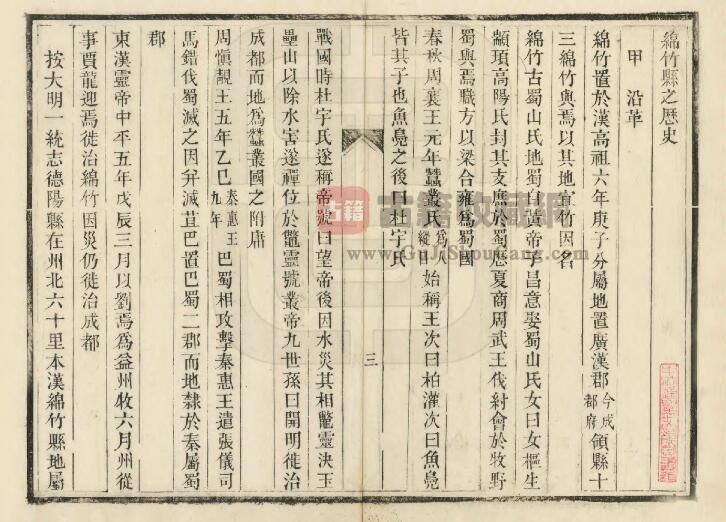 綿竹縣之歷史
甲 沿革
綿竹置於漢高祖六年庚子分屬地置廣漢郡今成都府領縣十
三綿竹與焉以其地宜竹因名
綿竹古蜀山氏地蜀自黃帝子昌意娶蜀山氏女曰女樞生
顓頊高陽氏封其支庶於蜀歷夏商周武王伐紂會於牧野
蜀與焉職方以梁合雍爲蜀國
春秋周襄王元年蠶叢氏爲人縱目始稱王次曰柏灌次曰魚鳧
皆其子也魚鳧之後曰杜宇氏
三
戰國時杜宇氏遂稱帝號曰望帝後因水災其相鼈靈決玉
壘山以除水害遂禪位於鼈靈號叢帝九世孫曰開明徙治
成都而地爲蠶叢國之附庸
周愼靚王五年乙巳秦惠王九年巴蜀相攻擊秦惠王遣張儀司
馬錯伐蜀滅之因幷滅苴巴置巴蜀二郡而地隸於秦屬蜀
郡
東漢靈帝中平五年戊辰三月以劉焉爲益州牧六月州從
事賈龍迎焉徙治綿竹因災仍徙治成都
按大明一統志德陽縣在州北六十里本漢綿竹縣地屬
古籍
古籍收藏网
www.GuJiShouCang.com